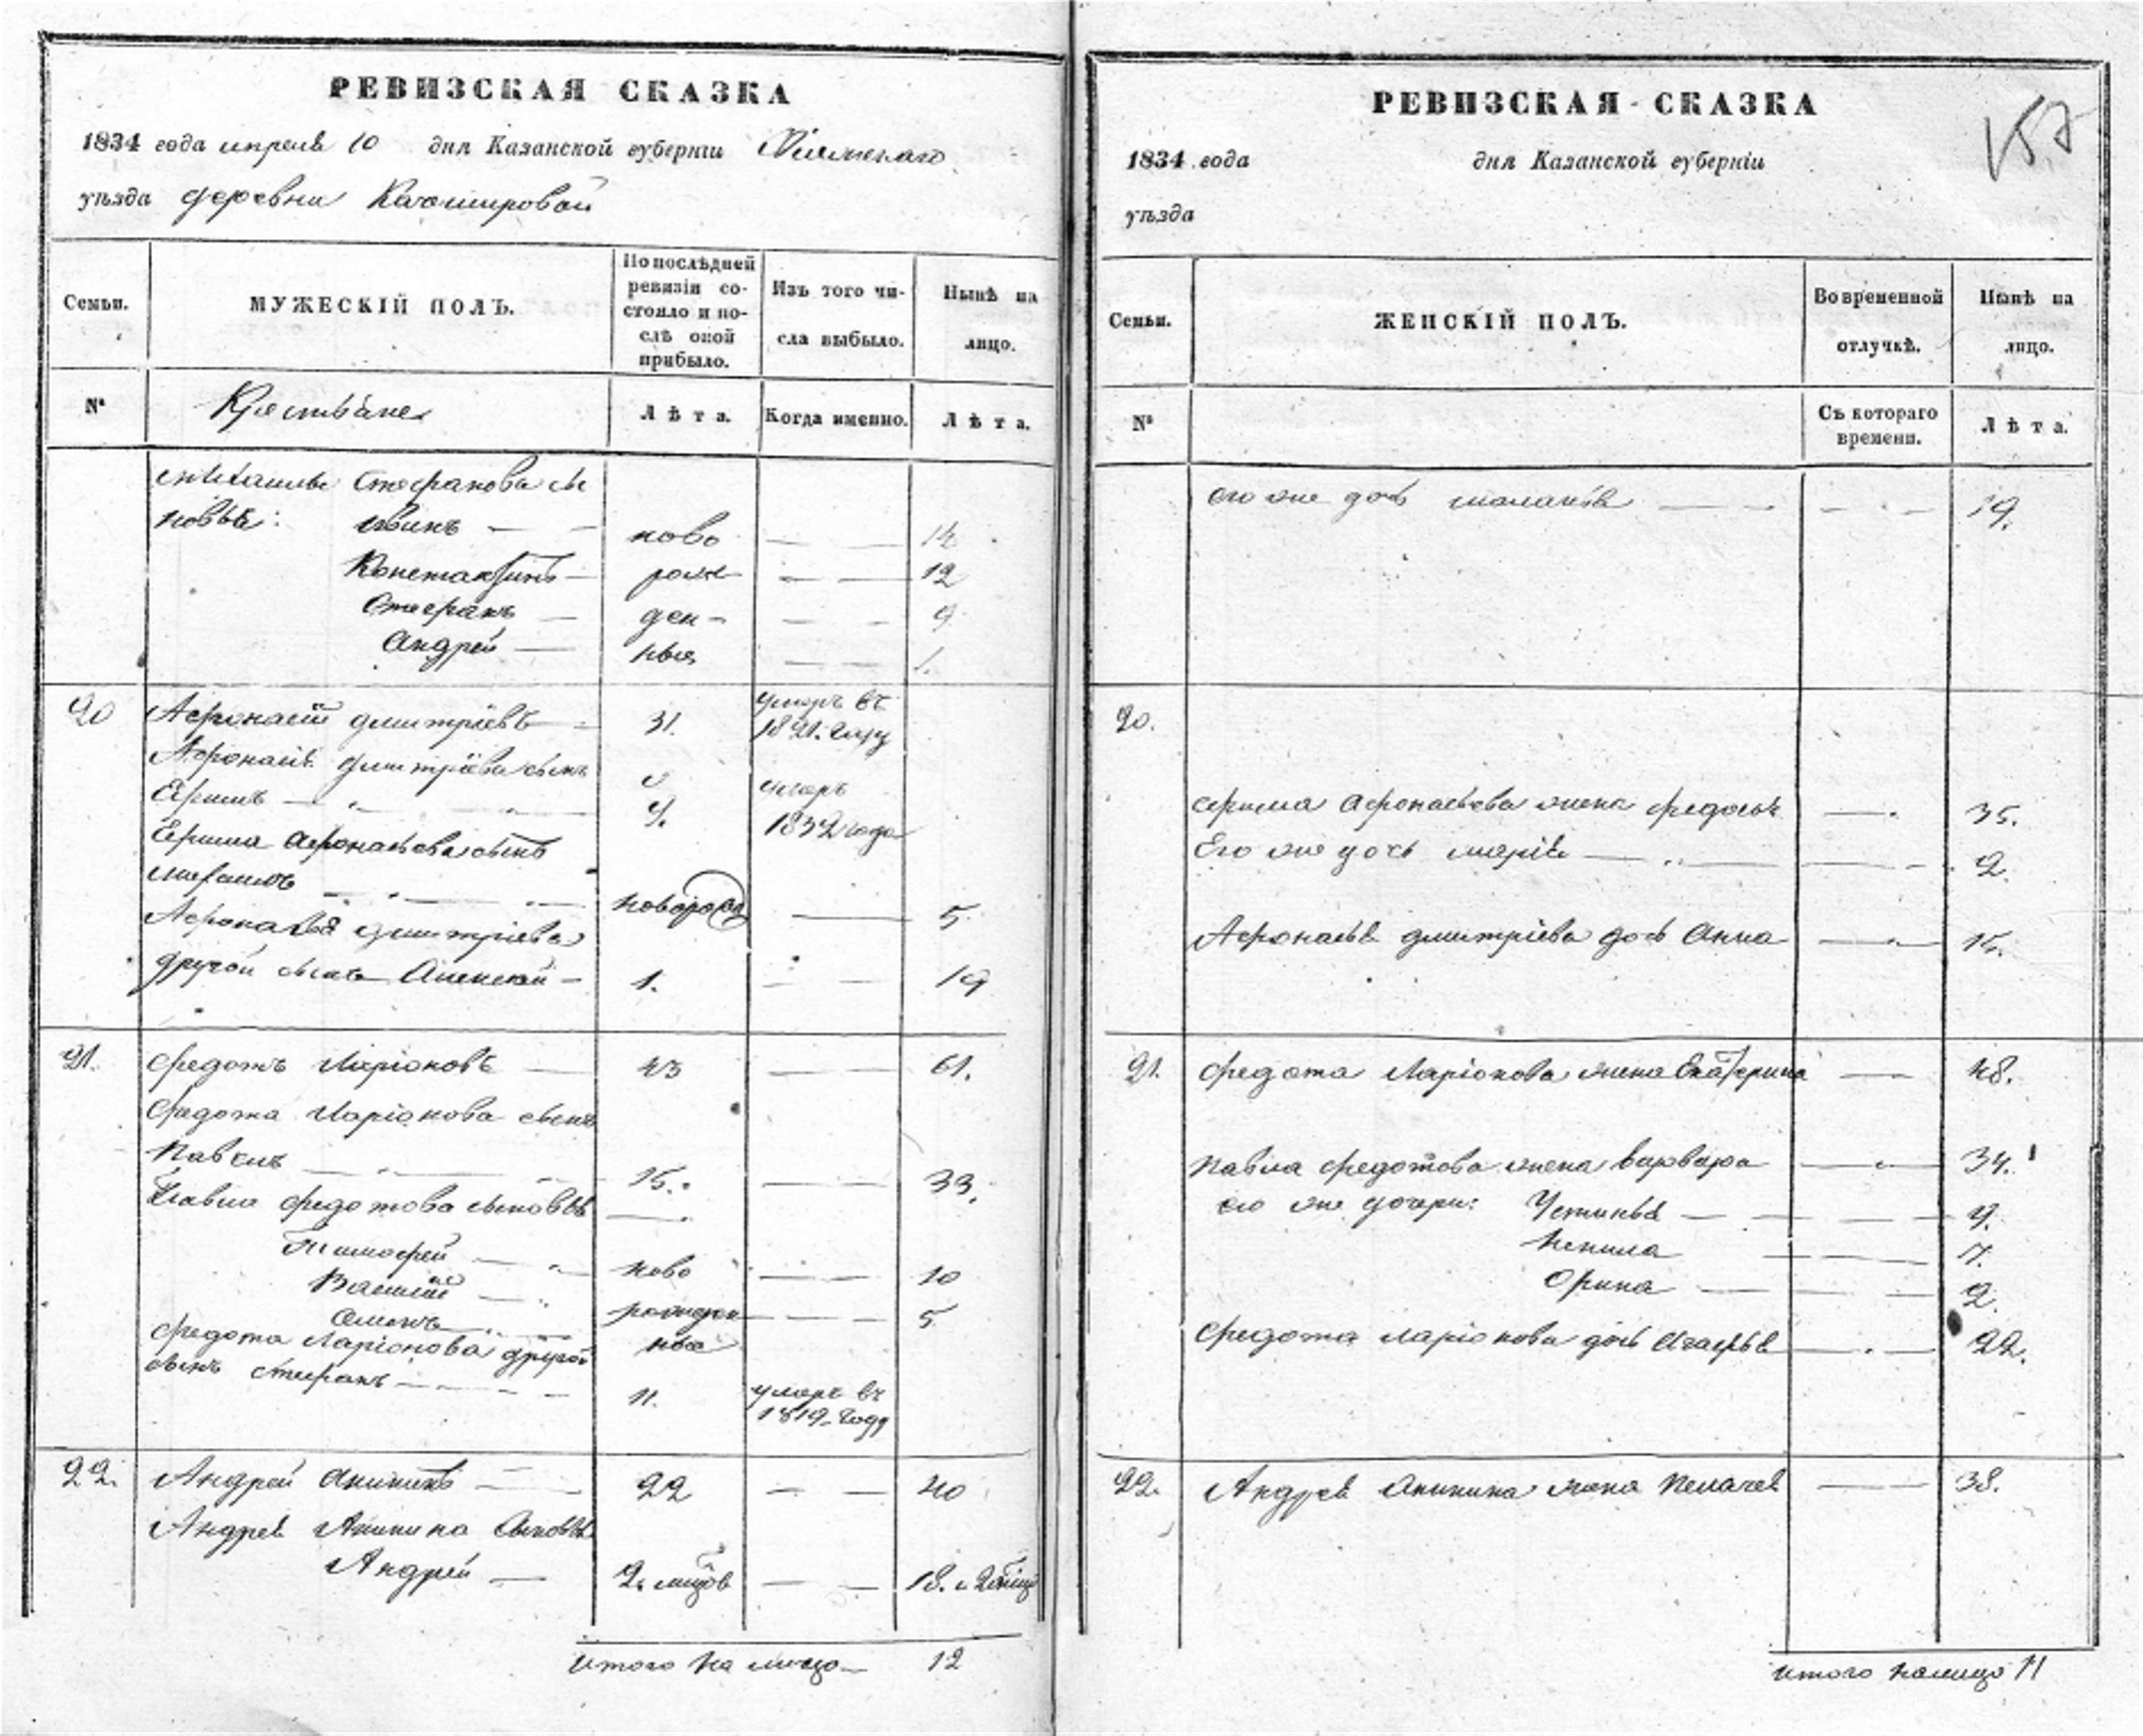 РЕВИЗСКАЯ СКАЗКА
1834 года апреля 10 дня Казанской губерніи
уѣзда деревни
Семьи.
МУЖЕСКІЙ ПОЛЪ.
По послѣдней
ревизіи со-
стояло и по-
слѣ оной
прибыло.
Изъ того чи-
сла выбыло.
Нынѣ на
лицо.
№
Крестьяне
Лѣта.
Когда именно.
Лѣта.
Стефанова сы
новья:
ново
Константинъ
рож
12
Стефанъ
ден-
9
Андрей
ныя
1.
20
Афонасій Дмитріевъ
31.
умеръ въ
1821. году
Афонасія Дмитріева сынъ
Ефимъ
умеръ
1832 года
Ефима Афонасьева сынъ
Михаилъ
новорож
5.
Афонасья Дмитріева
другой сынъ Алексей
1.
19
21.
Федотъ Ларіоновъ
43
61.
Федота Ларіонова сынъ
Павелъ
15.
33.
Павла Федотова сыновья
Тимофей
ново
10
Василій
рожден
5
Семенъ
ныя
Федота Ларіонова другой
сынъ Стефанъ
11.
умеръ въ
1819. году
22.
Андрей Аникинъ
22
40
Андрея Аникина сыновья
Андрей
2. мѣсяцов
18. и 2 мѣсяц
Итого на лицо
12
РЕВИЗСКАЯ СКАЗКА
157
1834 года дня Казанской губерніи
уѣзда
Семьи.
ЖЕНСКІЙ ПОЛЪ.
Во временной
отлучкѣ.
Нынѣ на
лицо.
№
Съ котораго
времени.
Лѣта.
его же дочь Маланья
19.
20.
Ефима Афонасьева жена Федосья
35.
Его же дочь Марья
2.
Афонасья Дмитріева дочь Анна
15.
21.
Федота Ларіонова жена Екатерина
48.
Павла Федотова жена Варвара
34.
его же дочери: Устинья
9.
Ненила
7.
Орина
2.
Федота Ларіонова дочь Агафья
22.
22.
Андрея Аникина жена Пелагея
38.
Итого налицо 11